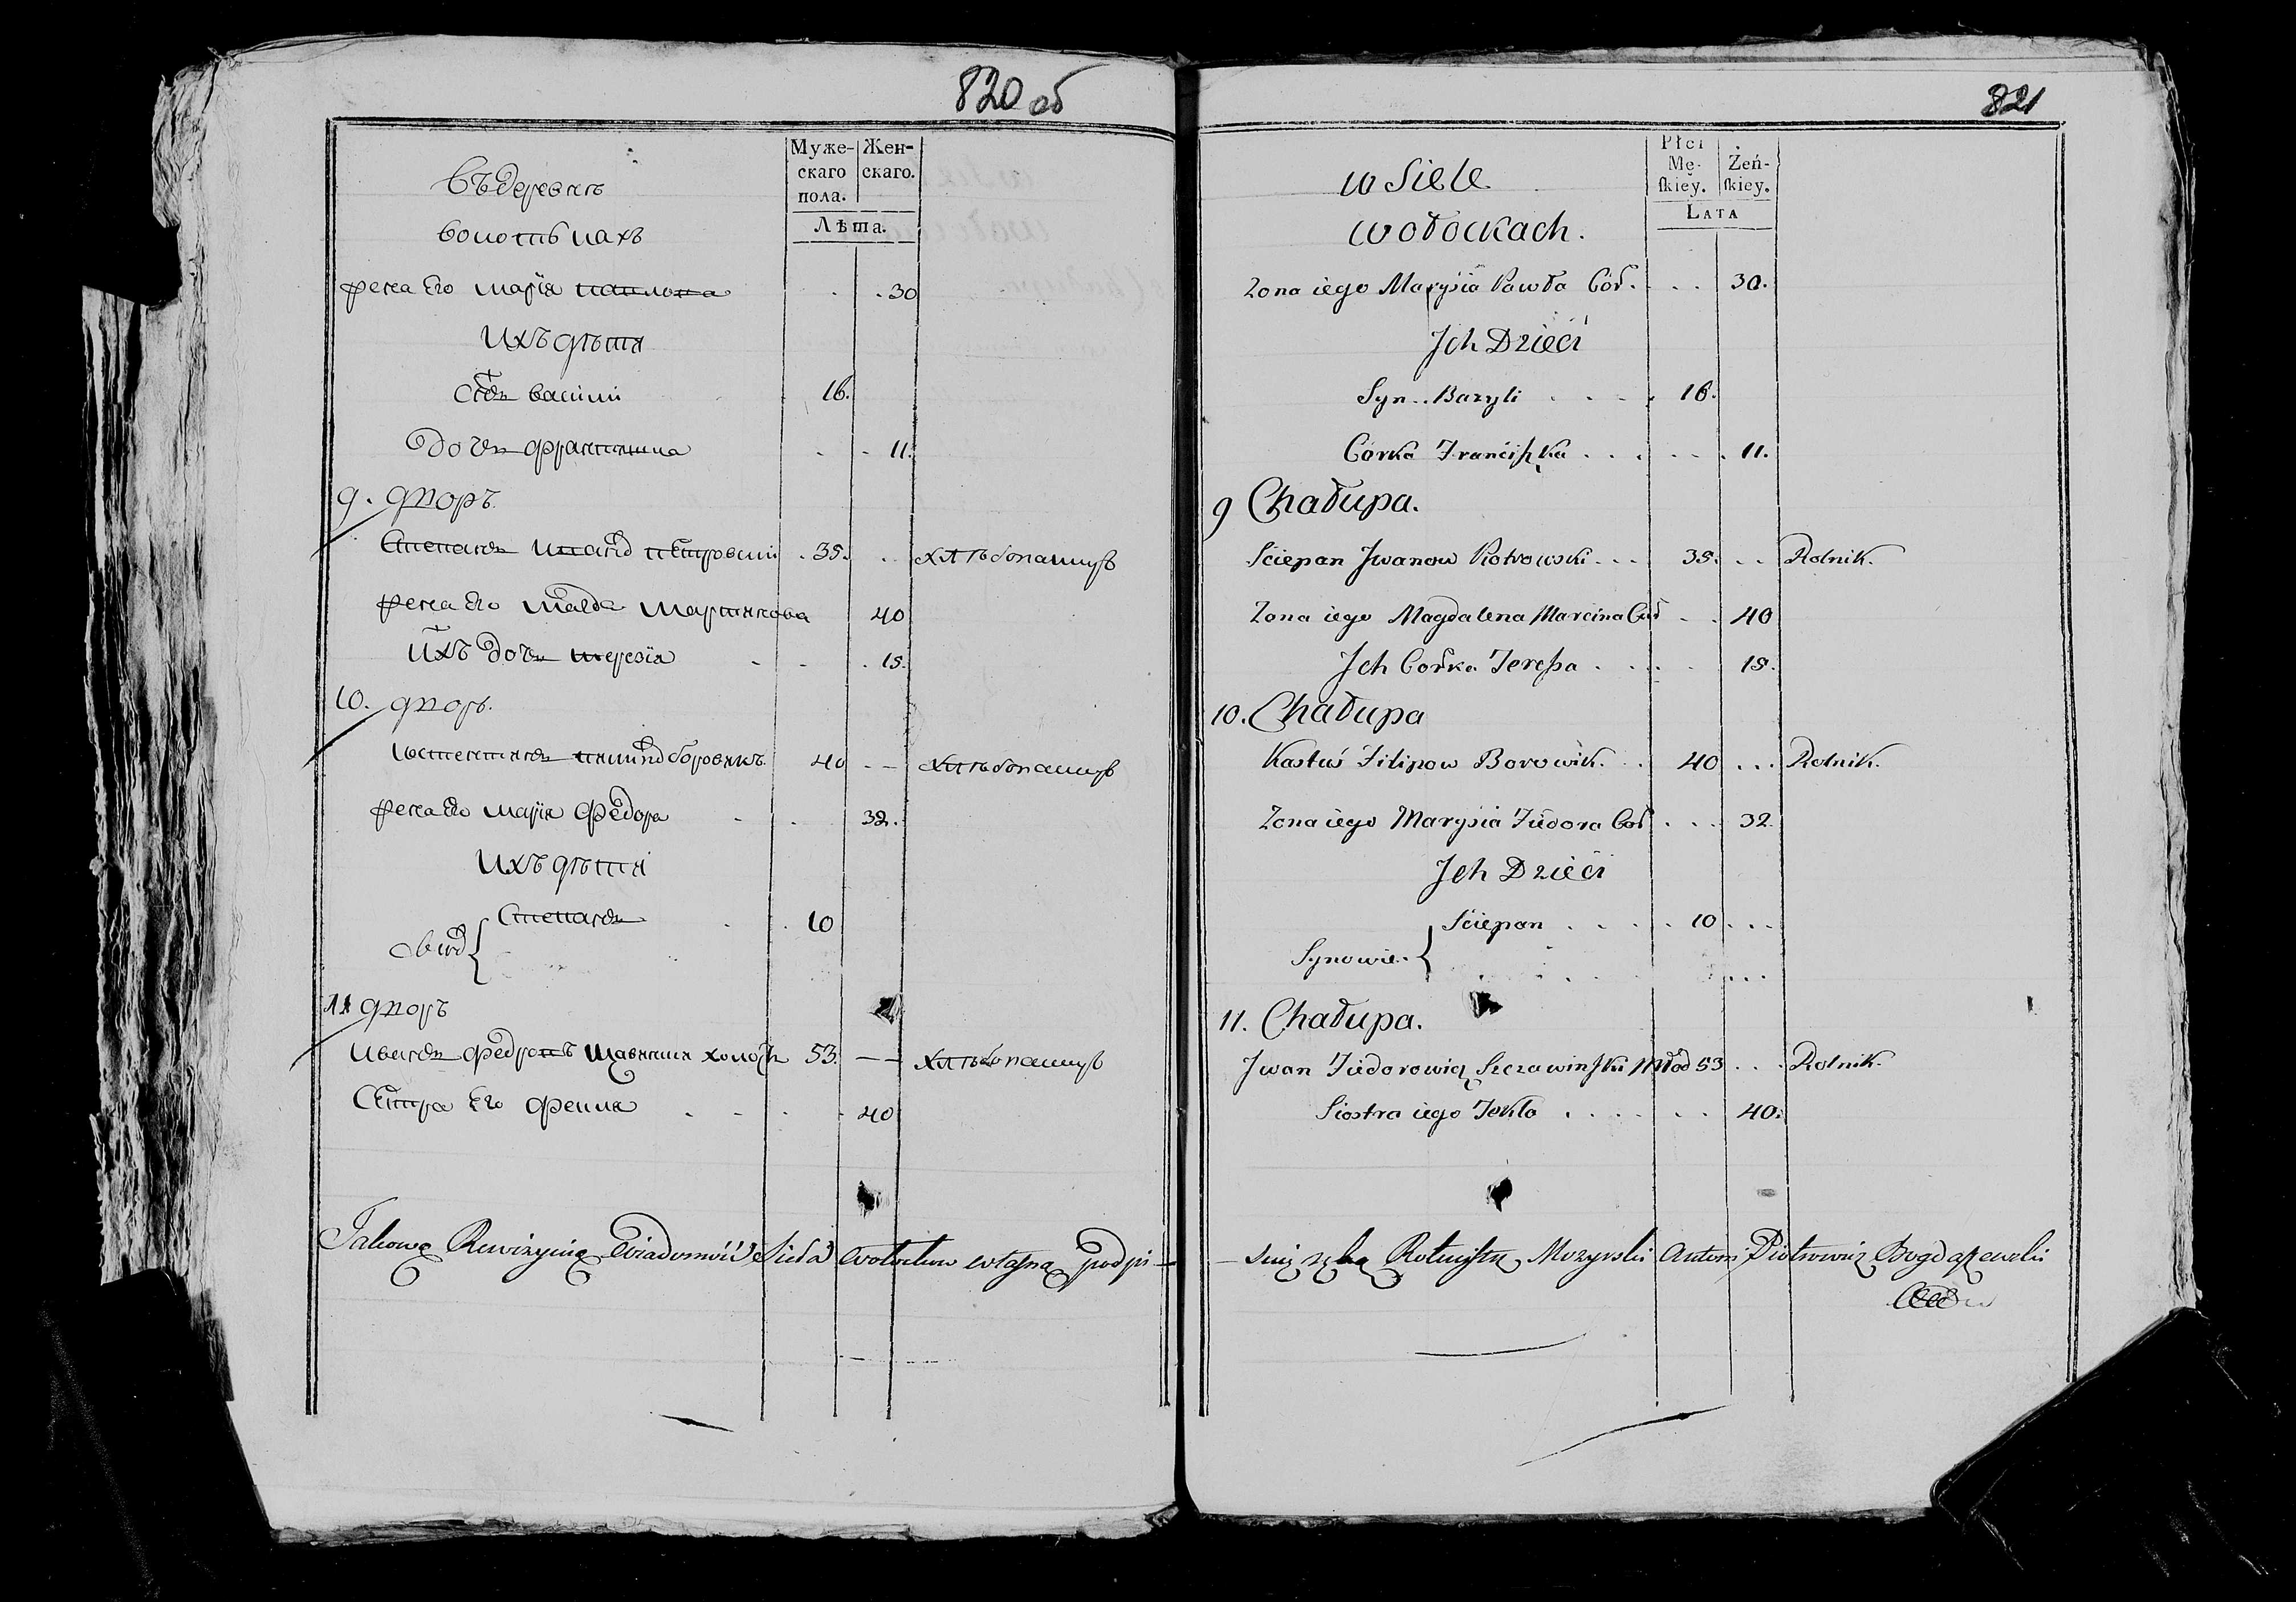 820 об
Муже-
скаго
пола.
Жен-
скаго.
Лѣта.
Въ деревнѣ
волотькахъ
жена Его Марiя Павлова . . 30
Ихъ дѣти
Сынъ Василiй 16.
дочь Францишка . . 11.
9. дворъ.
Степанъ Ивановъ . 35. . . хлѣбопашцъ
жена Его Магда Мартинова 40
Ихъ дочь Терезiя . . . 15.
10. дворъ.
Филиповъ Боровикъ 40 . . хлѣбопашцъ
жена Его Марiя Федора . . 32.
Ихъ дѣти
Степанъ . . 10
11 дворъ
Иванъ Федоровъ 53. — — хлѣбопашцъ
Сестра Его . . . . 40
Takową Rewizyiną Wiadomość Sieła Wołotkow własną podpi—
821
Płci
Mę-
ſkiey.
Żeń-
ſkiey.
Lata
w Siele
wołockach.
Zona iego Marysia Pawła Cór. . . . 30.
Jch Dzieci
Syn . . Bazyli . . . . 16.
Córka Franciszka . . . . . . . 11.
9 Chałupa.
Sciepan Jwanow Kotrowski . . . 35. . . Rolnik.
Zona iego Magdalena Marcina Cór . . 40
Jch Corka Teressa . . . . . 15.
10. Chałupa
Kastuś Filipow Borowik. . . 40 . . . Rolnik.
Zona iego Marysia Fiedora Cor . . . 32.
Jch Dzieci
Sciepan . . . . . 10 . . .
Synowie. {
11. Chałupa.
Jwan Fiedorowicz Szczawinſki Młod 53 . . . Rolnik.
Siostra iego Tekla . . . . . . 40.
— suię ręką Rotmistrz Mozyrski Antoni Piotrowicz Bogdaszewski